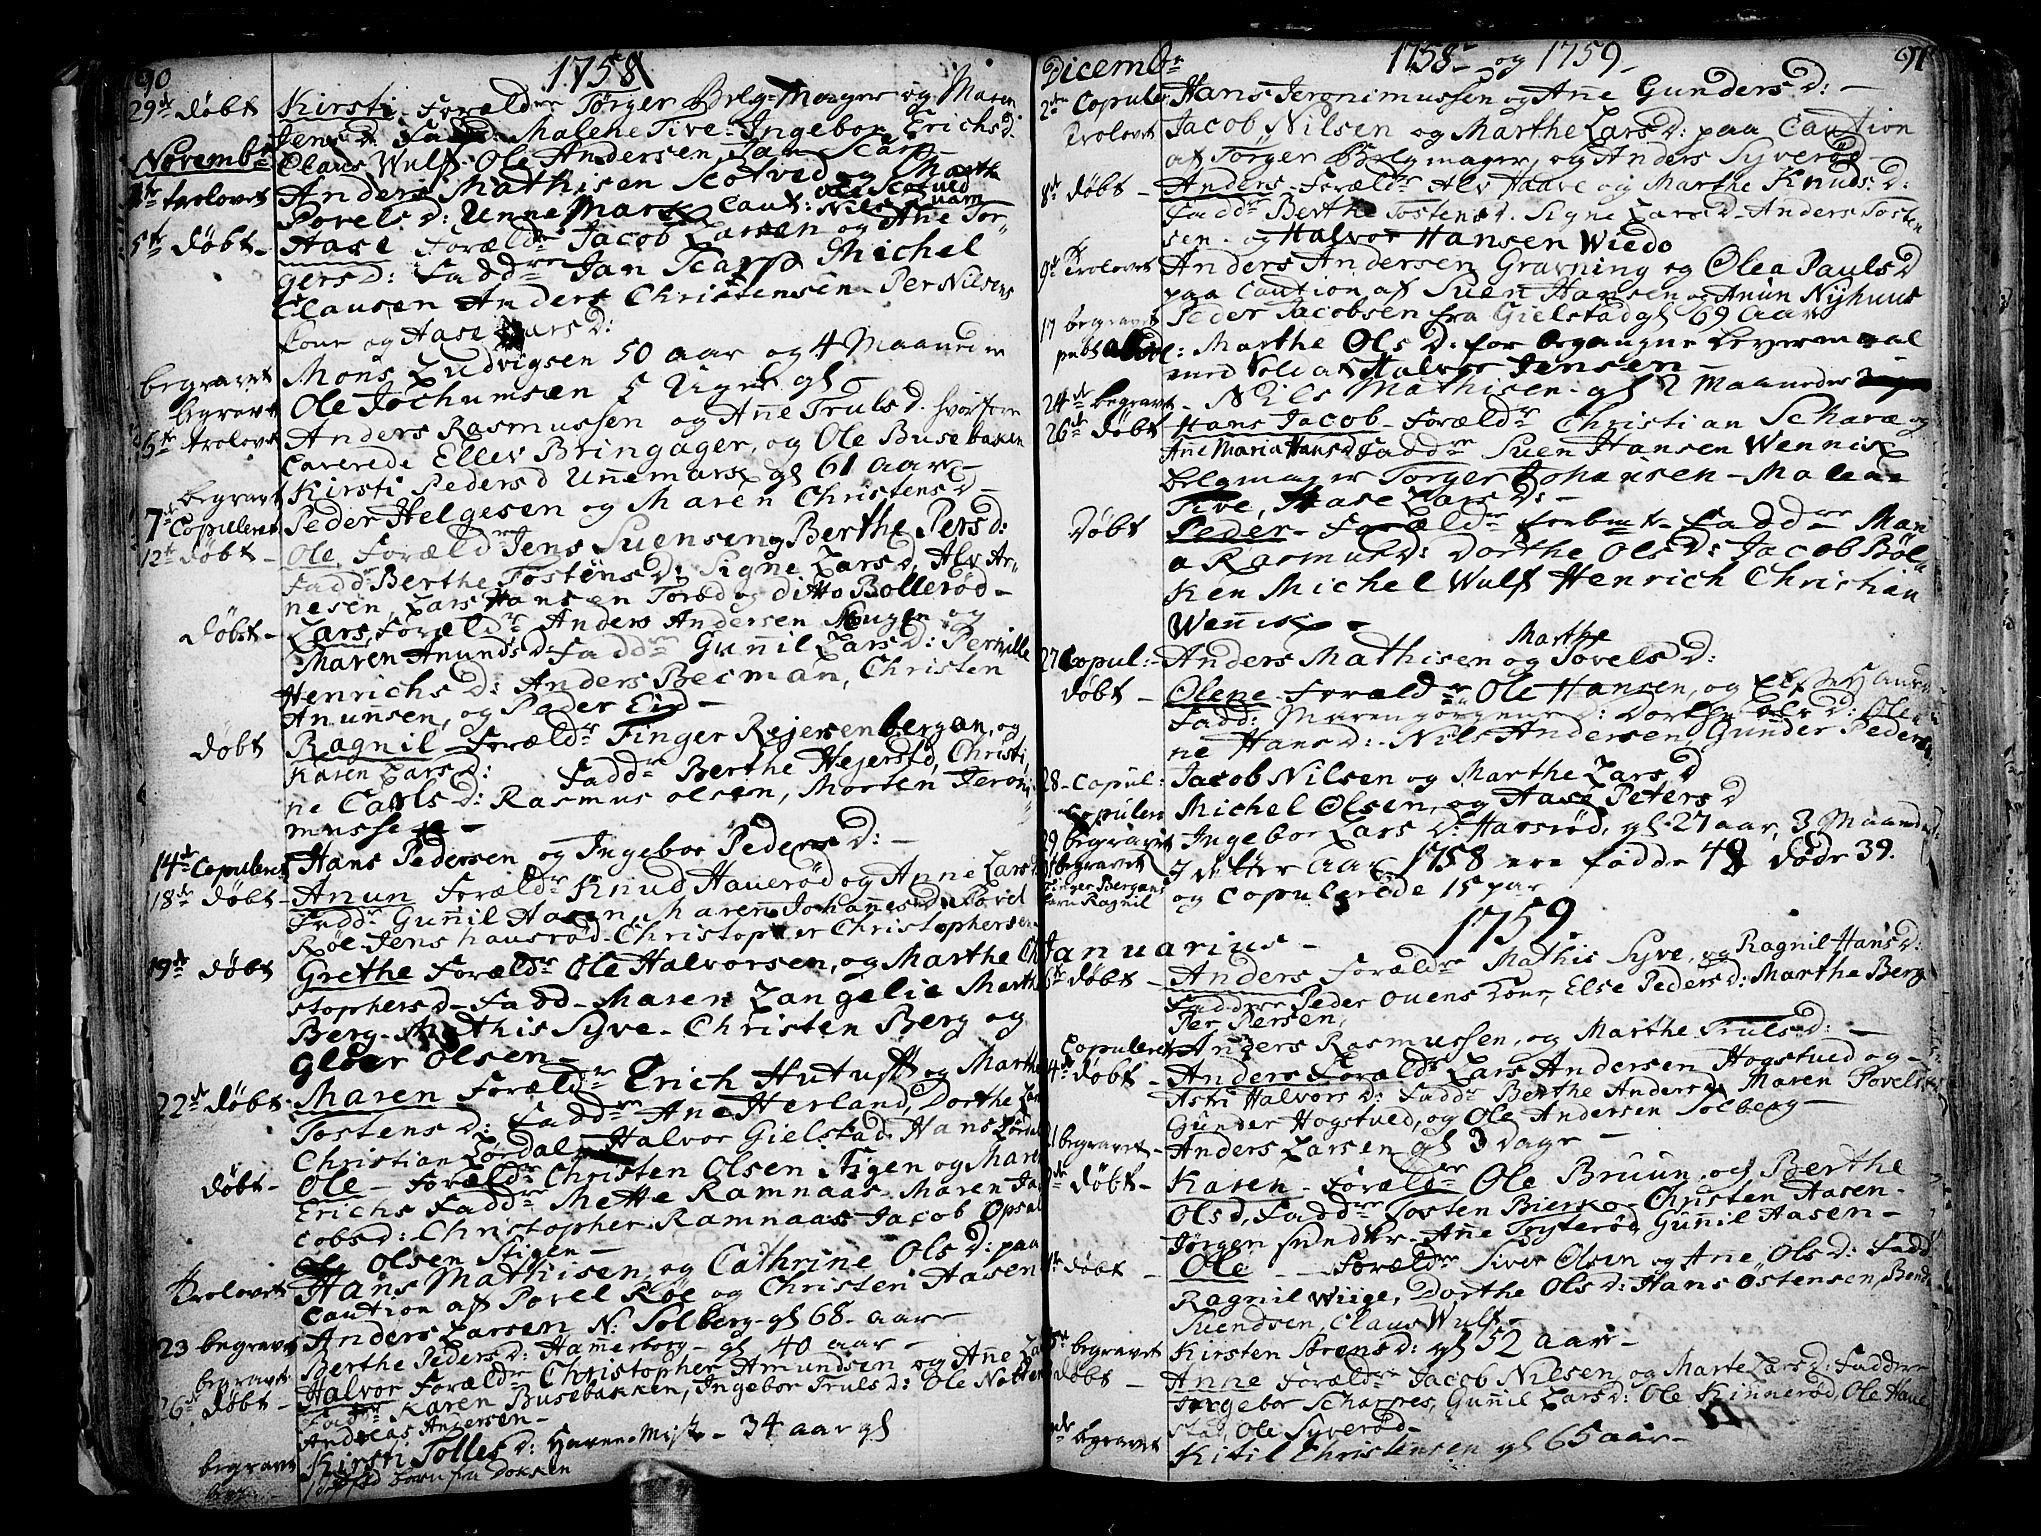 90
1758
29de döbt Kirsti Forældre Törger Belgmager og Maren
Jens D. Fadd: Malene Tive Ingebor Erichs D.
Novembr Claus Wulf Ole Andersen, Jan Scarp
trolovet Anders Mathisen Scotved og Marthe
Povels D: Unnemarx Caut: Ole Scotved Nils
5te döbt Aase Forældre Jacob Larsen og Ane Tor-
gers D: Faddre Jan Scarp Michel
Clausen Anders Christensen Per Nilsens
Kone og Aase Lars D:
begravet Mons Ludvigsen 50 aar og 4 Maaneder
begravet Ole Jochumsen 5 Uger gl
6te trolovet Anders Rasmussen og Ane Truls D. hvorfore
Caverede Ellev Bringager, og Ole Busebaken
begravet Kirsti Peders D Unnemarx gl 61 aar
7de Copuleret Peder Helgesen og Maren Christens D
12te döbt Ole Forældre Jens Suensen og Berthe Pers D:
Fadd: Berthe Tostens D: Signe Lars D, Alv Ar-
nesen, Lars Hansen Toröd og ditto Bolleröd
döbt Lars, Forældre Anders Andersen Haugen og
Maren Anunds D. Faddre Gunnil Lars D: Pernille
Henrichs D: Anders Becman, Christen
Anunsen, og Peder Eid
döbt Ragnil Forældre Finger Rejersen bergan, og
Karen Lars D: Faddre Berthe Hejerstd, Christi
ne Carls D: Rasmus olsen, Morten Jeroni-
mussen
14de Copuleret Hans Pedersen og Ingebor Peders D:
18de döbt Anun Forældre Knud Haueröd og Anne Lars D
Faddre Gunnil Aasen, Maren Johanes D: Povel
Röe Jens hausröd Christopher Christophersen
19de döbt Grethe Forældre Ole Halvorsen, og Marthe Chri
stophers D Fadd Maren Langelie Marthe
Berg Mathis Syve Christen Berg og
Gloer Olsen
22de döbt Maren Forældre Erich Hutuft og Marthe
Tostens D: Faddre Ane Herland, Dorthe Lör
Christian Lördal Halvor Gielstad Hans Lördal
döbt Ole Forældre Christen Olsen Stigen og Maren
Erichs Faddre Mette Ramnaas Maren Ja
cobs D: Christopher Ramnaas Jacob Opsal
Olsen Stigen
trolovet Hans Mathisen og Cathrine Ols D: paa
Caution af Povel Röe og Christen Aasen
23 begravet Anders Larsen N. Solberg gl 68 aar
begravet Berthe Peders D: Hamerborg gl 40 aar
26de döbt Halvor Forældre Christopher Amundsen og Ane
Faddre Karen Busebakken, Ingebor Truls D: Ole
Andreas Andersen
begravet Kirsti Tolles D: 34 aar gl
barn fra Dokken
91
1758 og 1759
Dicembr
2den Copuler Hans Jeronimussen og Ane Gunders D:
trolovet Jacob Nilsen og Marthe Lars D: paa Caution
af Törger Belgmager, og Anders Syveröd
8de döbt Anders Forældre Alv Haave og Marthe Knuds D:
Faddr Berthe Tostens D. Signe Lars D Anders Tosten
sen og Halvor Hansen Wiedo
9de trolovet Anders Andersen Gravning og Olea Pauls D
paa Caution af Suen Hansen og Anun Nijhuus
17 begravet Peder Jacobsen fra Gielstad gl 69 aar
publ absol: Marthe Ols D: for begangne Leyermaal
med Sold af Halvor Jensen
24de begravet Nils Mathisen gl 2 Maaneder
26de döbt Hans Jacob Forældre Christian Scharæ og
Ane Maria Hans D Faddre Suen Hansen Wennix
Belgmager Törger Johansen Malene
Tive, Aase Lars D:
Döbt Peder Forældre forbmt Faddre Man
a Rasmus D: Dorthe Ols D: Jacob Böl-
ken Michel Wulf Henrich Christian
Wennix
27 Copul: Anders Mathisen og Marthe Povels D:
döbt Olene Forældre Ole Hansen, og
Fadd: Maren Jörgens D: Dorthe Ols D: Ole
ne Hans D: Nils Andersen Gunder Pedersen
28 Copul: Jacob Nilsen og Marthe Lars D
Copulert Michel Olsen, og Aase Peters D
29 begravet Ingebor Lars D: Harsröd, gl 27 aar, 3 Maaneder
begravet Finger Bergans barn Ragnil
I dette Aar 1758 ere födde 48 döde 39.
og Copulerede 15 par
1759
Januarius
6te döbt Anders Forældre Mathis Syve, og Ragnil Hans D:
Faddre Peder Ouens Kone, Else Peders D: Marthe Berg
Per Persen,
Copuleret Anders Rasmussen, og Marthe Truls D:
döbt Anders Forældr Lars Andersen Hogstved og
Astri Halvors D: Faddr Berthe Anders D Maren Povels
Gunder Hogstved, og Ole Andersen Solberg
21 begravet Anders Larsen gl 3 Dage
döbt Karen Forældre Ole Bruun, og Berthe
Ols D, Faddre Tosten Bierke Christen Aasen
Jörgen Ane Tryteröd Gunnil Aasen
döbt Ole Forældr Siver Olsen og Ane Ols D: Fadd
Ragnil Wiige, Dorthe Ols D: Hans Ostensen, Bend
Suendsen, Claus Wulf
begravet Kirsten Sörens D: gl 52 aar
döbt Anne Forældre Jacob Nilsen og Marte Lars D: Faddere
Ingebor Scharpes, Gunnil Lars D: Ole Kinneröd Ole Haue
stad, Ole Syveröd
begravet Kitil Christensen gl 65 aar